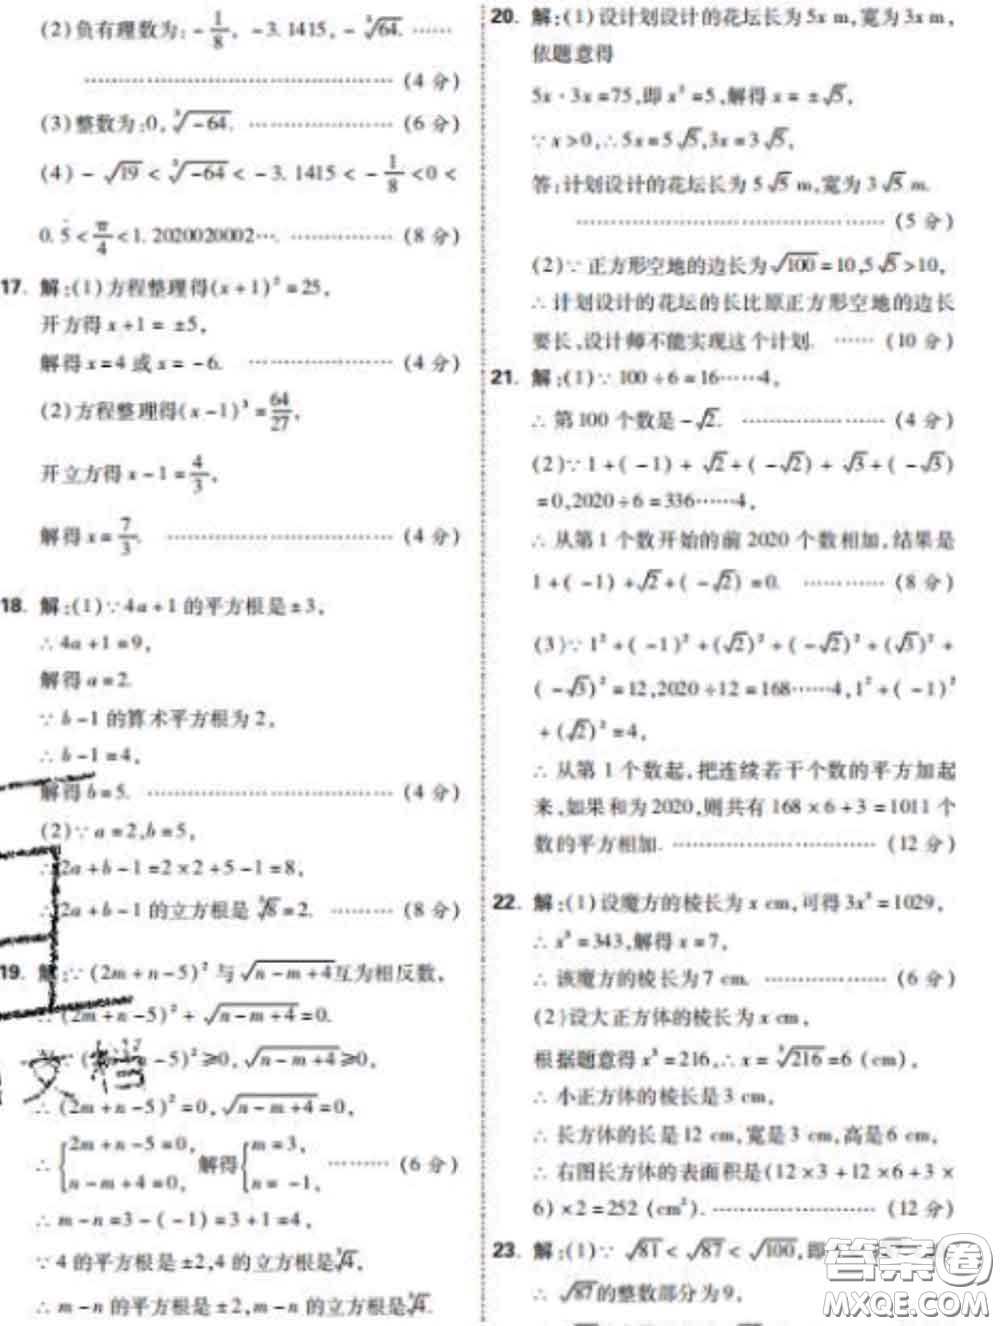 (2)负有理数为:-1/8, -3.1415, -∛64. ……
…………………………………… (4 分)
(3)整数为:0, ∛-64. ……………… (6 分)
(4)-√19 < ∛-64 < -3.1415 < -1/8 < 0 <
0.5̇ < π/4 < 1.2020020002…. ………… (8 分)
17. 解:(1)方程整理得(x+1)²=25,
开方得 x+1=±5,
解得 x=4 或 x=-6. ……………… (4 分)
(2)方程整理得(x-1)³=64/27,
开立方得 x-1=4/3,
解得 x=7/3. ………………………… (4 分)
18. 解:(1)∵4a+1 的平方根是±3,
∴4a+1=9,
解得 a=2.
∵b-1 的算术平方根为 2,
∴b-1=4,
解得 b=5. …………………………… (4 分)
(2)∵a=2,b=5,
∴2a+b-1=2×2+5-1=8,
∴2a+b-1 的立方根是∛8=2. ……… (8 分)
19. 解:∵(2m+n-5)²与√n-m+4互为相反数,
∴(2m+n-5)²+√n-m+4=0.
-5)²≥0,√n-m+4≥0,
∴(2m+n-5)²=0,√n-m+4=0,
∴{2m+n-5=0, n-m+4=0, 解得{m=3, n=-1, ……… (6 分)
∴m-n=3-(-1)=3+1=4,
∵4 的平方根是±2,4 的立方根是∛4,
∴m-n 的平方根是±2,m-n 的立方根是∛4.
20. 解:(1)设计划设计的花坛长为 5x m,宽为 3x m,
依题意得
5x·3x=75,即 x²=5,解得 x=±√5,
∵x>0,∴5x=5√5,3x=3√5,
答:计划设计的花坛长为 5√5 m,宽为 3√5 m.
…………………………………… (5 分)
(2)∵正方形空地的边长为√100=10,5√5>10,
∴计划设计的花坛的长比原正方形空地的边长
要长,设计师不能实现这个计划. …… (10 分)
21. 解:(1)∵100÷6=16……4,
∴第 100 个数是-√2. ……………… (4 分)
(2)∵1+(-1)+√2+(-√2)+√3+(-√3)
=0,2020÷6=336……4,
∴从第 1 个数开始的前 2020 个数相加,结果是
1+(-1)+√2+(-√2)=0. ………… (8 分)
(3)∵1²+(-1)²+(√2)²+(-√2)²+(√3)²+
(-√3)²=12,2020÷12=168……4,1²+(-1)²
+(√2)²=4,
∴从第 1 个数起,把连续若干个数的平方加起
来,如果和为 2020,则共有 168×6+3=1011 个
数的平方相加. ……………………… (12 分)
22. 解:(1)设魔方的棱长为 x cm,可得 3x³=1029,
∴x³=343,解得 x=7,
∴该魔方的棱长为 7 cm. …………… (6 分)
(2)设大正方体的棱长为 x cm,
根据题意得 x³=216,∴x=∛216=6 (cm),
∴小正方体的棱长是 3 cm,
∴长方体的长是 12 cm,宽是 3 cm,高是 6 cm,
∴右图长方体的表面积是(12×3+12×6+3×
6)×2=252 (cm²). ………………… (12 分)
23. 解:(1)∵√81<√87<√100,即
∴√87的整数部分为 9,
答案圈
MXQE.COM
文档